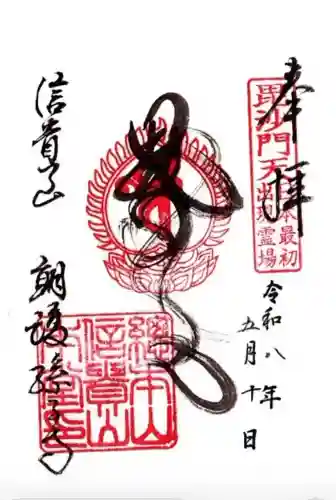 奉拝
毘沙門天
日本最初
出現霊場
令和八年
五月十日
信貴山
朝護孫子寺
總本山
信貴山